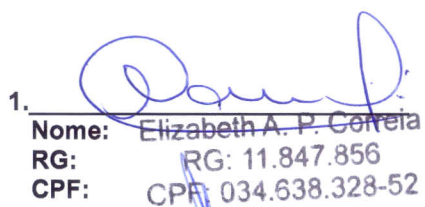 1.
Nome: Elizabeth A. P. Correia
RG: RG: 11.847.856
CPF: CPF: 034.638.328-52